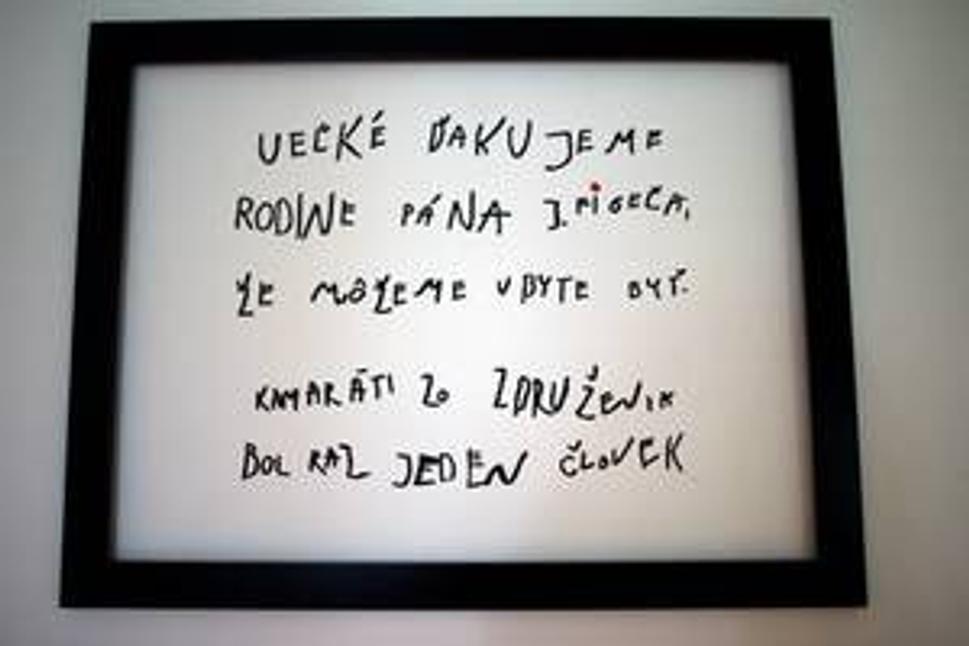 VEĽKÉ ĎAKUJEME
RODINE PÁNA J.
ŽE MÔŽEME V BYTE BYŤ.
KAMARÁTI ZO ZDRUŽENIA
BOL RAZ JEDEN ČLOVEK